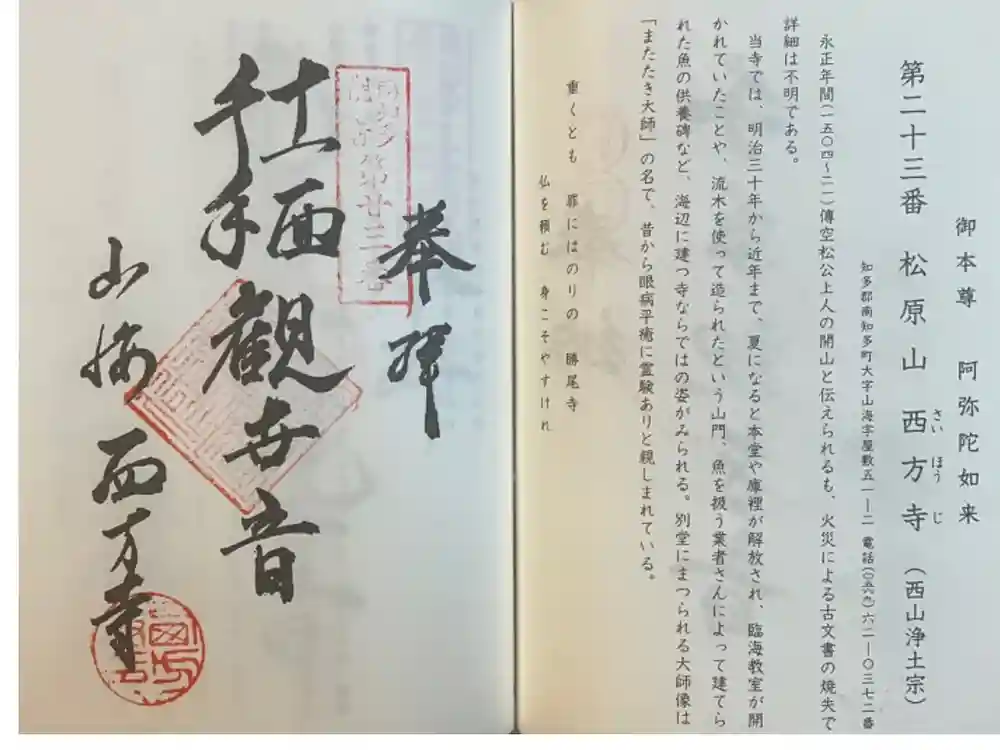 御本尊　阿弥陀如来
第二十三番　松原山　西方寺（西山浄土宗）
さい　ほう　じ
知多郡南知多町大字山海字屋敷五一―二　電話(〇五六九)六二―〇三七二番
永正年間(一五〇四～二一)傳空松公上人の開山と伝えられるも、火災による古文書の焼失で
詳細は不明である。
当寺では、明治三十年から近年まで、夏になると本堂や庫裡が解放され、臨海教室が開
かれていたことや、流木を使って造られたという山門、魚を扱う業者さんによって建てら
れた魚の供養碑など、海辺に建つ寺ならではの姿がみられる。別堂にまつられる大師像は
「またたき大師」の名で、昔から眼病平癒に霊験ありと親しまれている。
重くとも　罪にはのりの　勝尾寺
仏を頼む　身こそやすけれ
奉拝
十一面
千手
観世音
山海　西方寺